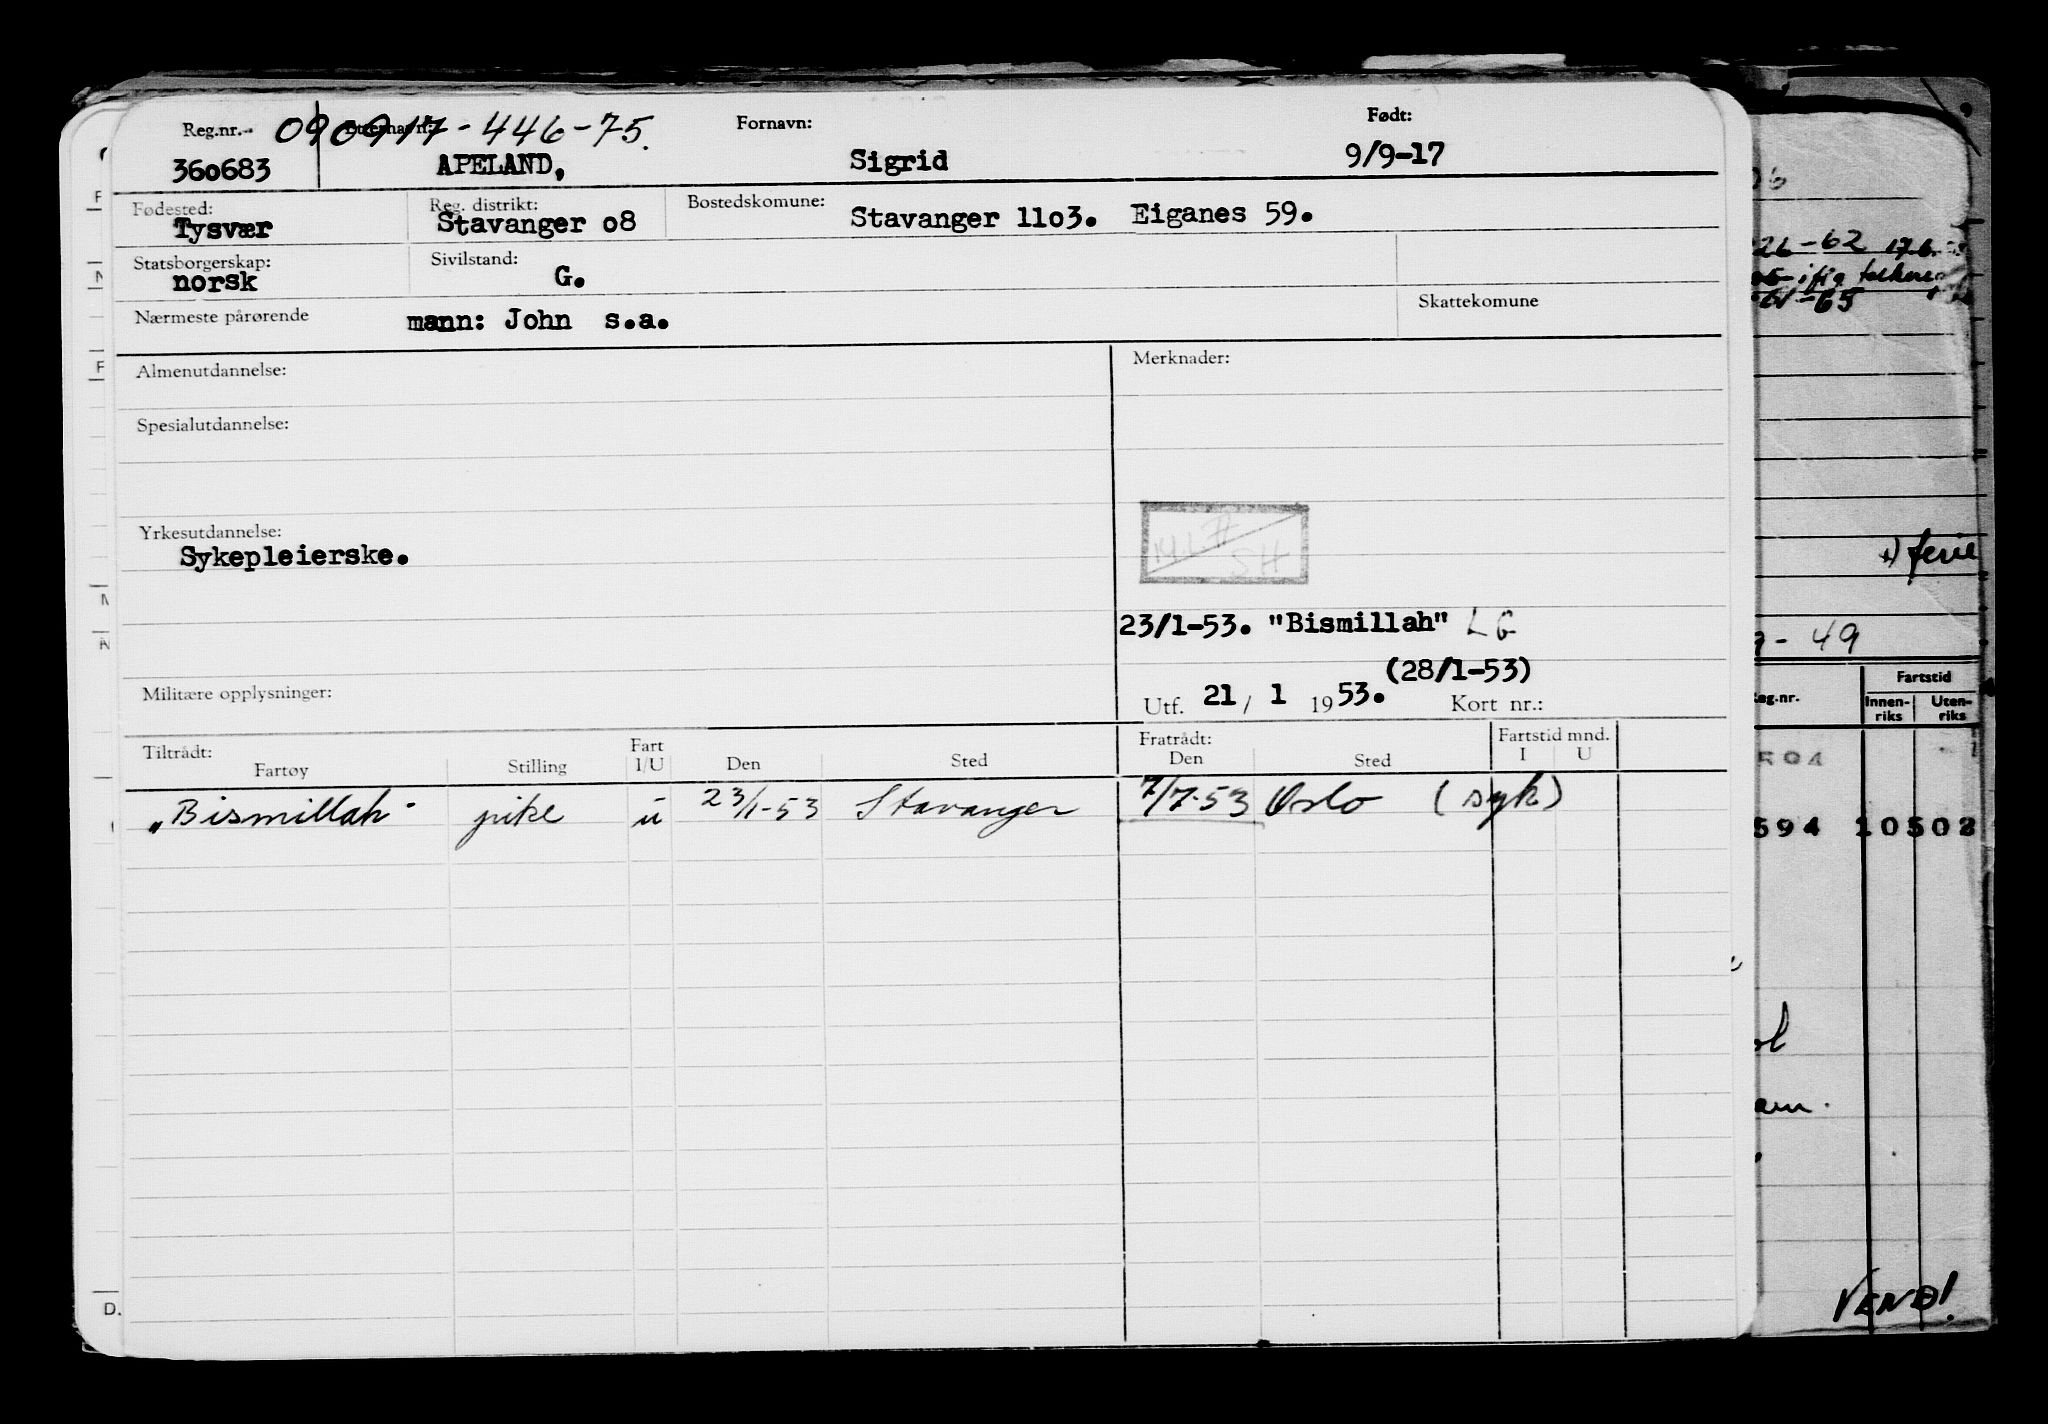 Reg.nr. 090917-446-75. Etternavn: Fornavn: Født:
360683 APELAND, Sigrid 9/9-17
Fødested: Reg. distrikt: Bostedskomune:
Tysvær Stavanger o8 Stavanger 11o3. Eiganes 59.
Statsborgerskap: Sivilstand:
norsk G.
Nærmeste pårørende mann: John s.a. Skattekomune
Almenutdannelse: Merknader:
Spesialutdannelse:
Yrkesutdannelse:
Sykepleierske.
SH
23/1-53. "Bismillah" LG
(28/1-53)
Militære opplysninger: Utf. 21 / 1 1953. Kort nr.:
Tiltrådt: Fratrådt: Fartstid mnd.
Fartøy Stilling Fart I/U Den Sted Den Sted I U
"Bismillah" pike u 23/1-53 Stavanger 7/7-53 Oslo (syk)
26-62
-65
+) ferie
- 49
Fartstid
Reg.nr. Innen-riks Uten-riks
594 10502
VEND!
D.